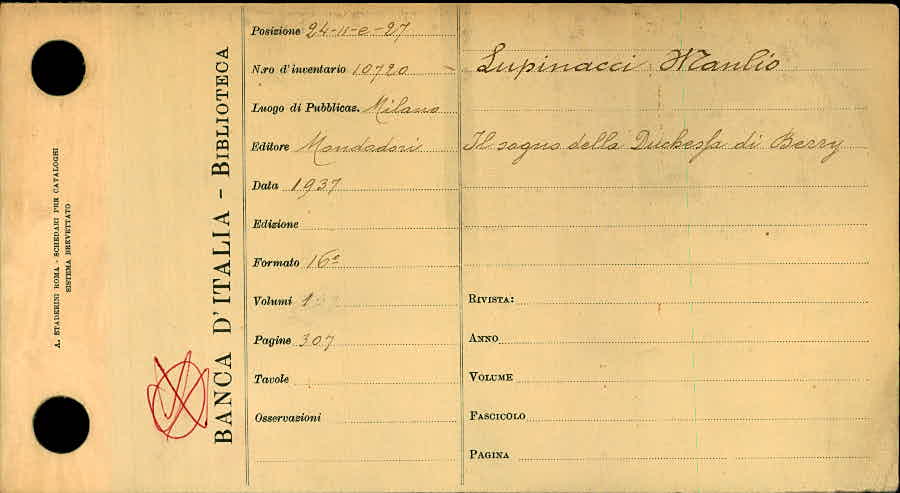 A. STADERINI ROMA - SCHEDARI PER CATALOGHI
SISTEMA BREVETTATO
BANCA D'ITALIA - BIBLIOTECA
Posizione 24-II-e-27
N.ro d'inventario 10720
Luogo di Pubblicaz. Milano
Editore Mondadori
Data 1937
Edizione
Formato 16º
Volumi 1
Pagine 307
Tavole
Osservazioni
Lupinacci Manlio
Il sogno della Duchessa di Berry
RIVISTA:
ANNO
VOLUME
FASCICOLO
PAGINA